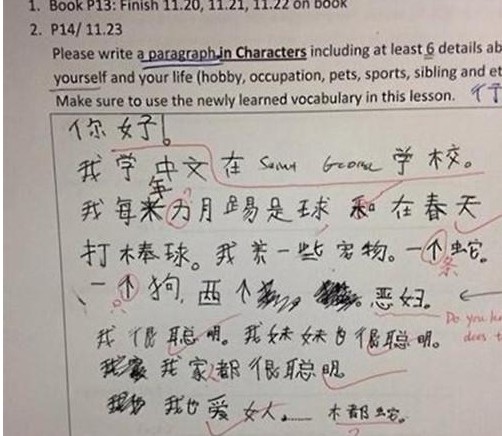 1. Book P13: Finish 11.20, 11.21, 11.22 on book
2. P14/ 11.23
Please write a paragraph in Characters including at least 6 details ab
yourself and your life (hobby, occupation, pets, sports, sibling and et
Make sure to use the newly learned vocabulary in this lesson.
你好!
我学中文在 Saint George 学校。
年
我每 月踢是球和在春天
打棒球。我养一些宠物。一个蛇。
条
一个狗,西个
只
我很聪明。我妹妹也很聪明。
Do you
does
我家都很聪明。
我也爱女人 木都蛇。